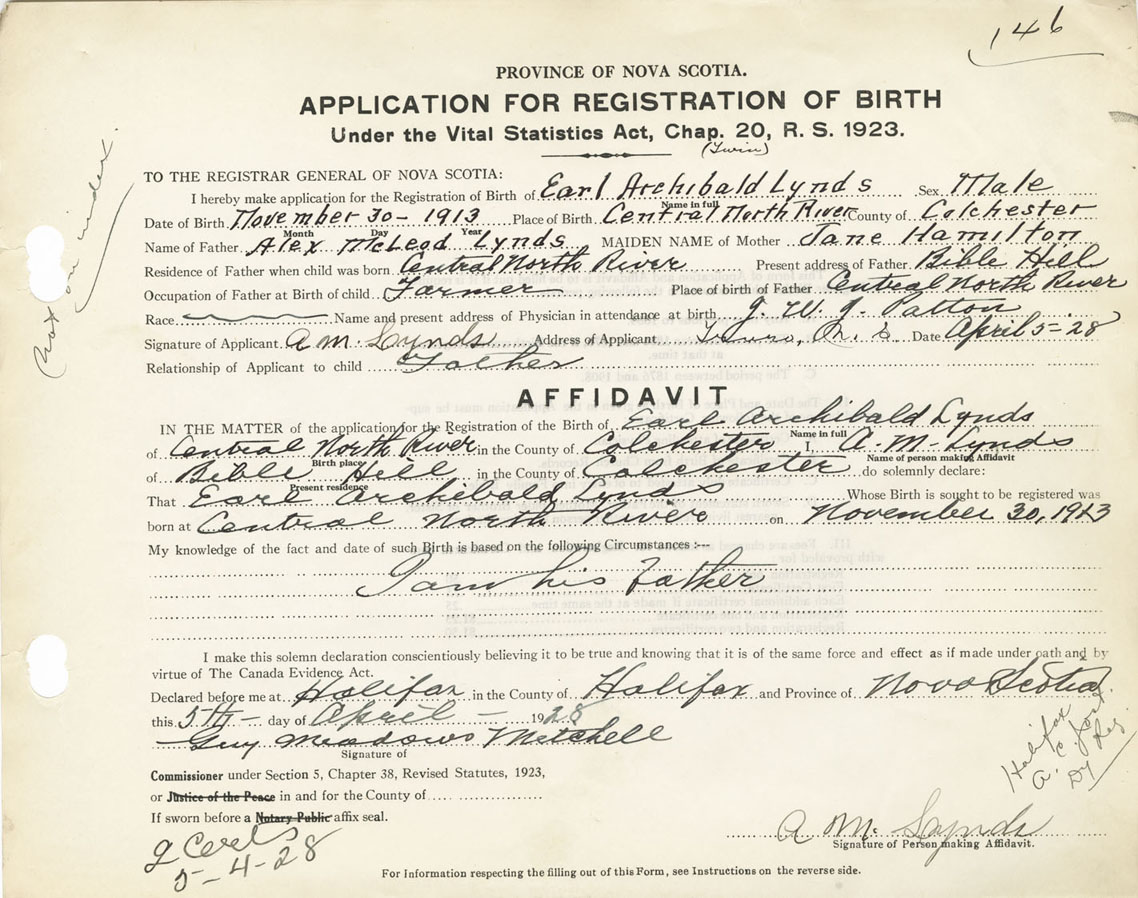 146
PROVINCE OF NOVA SCOTIA.
APPLICATION FOR REGISTRATION OF BIRTH
Under the Vital Statistics Act, Chap. 20, R. S. 1923.
(Twin)
TO THE REGISTRAR GENERAL OF NOVA SCOTIA:
I hereby make application for the Registration of Birth of Earl Archibald Lynds Sex Male
Name in full
Date of Birth November 30 - 1913 Place of Birth Central North River County of Colchester
Month Day Year
Name of Father Alex McLeod Lynds MAIDEN NAME of Mother Jane Hamilton
Residence of Father when child was born Central North River Present address of Father Bible Hill
Occupation of Father at Birth of child Farmer Place of birth of Father Central North River
Race Name and present address of Physician in attendance at birth J. W. J. Patton
Signature of Applicant A M. Lynds Address of Applicant Truro, N. S. Date April 5 - 28
Relationship of Applicant to child Father
AFFIDAVIT
IN THE MATTER of the application for the Registration of the Birth of Earl Archibald Lynds
Name in full
of Central North River in the County of Colchester I, A. M. Lynds
Birth place Name of person making Affidavit
of Bible Hill in the County of Colchester do solemnly declare:
Present residence
That Earl Archibald Lynds Whose Birth is sought to be registered was
born at Central North River on November 30, 1913
My knowledge of the fact and date of such Birth is based on the following Circumstances :---
I am his Father
I make this solemn declaration conscientiously believing it to be true and knowing that it is of the same force and effect as if made under oath and by
virtue of The Canada Evidence Act.
Declared before me at Halifax in the County of Halifax and Province of Nova Scotia
this 5th - day of April - 1928
Guy Meadows Mitchell
Signature of
Commissioner under Section 5, Chapter 38, Revised Statutes, 1923,
or Justice of the Peace in and for the County of
If sworn before a Notary Public affix seal.
Halifax
A. C.
Dy Reg.
5-4-28
A M. Lynds
Signature of Person making Affidavit.
For Information respecting the filling out of this Form, see Instructions on the reverse side.